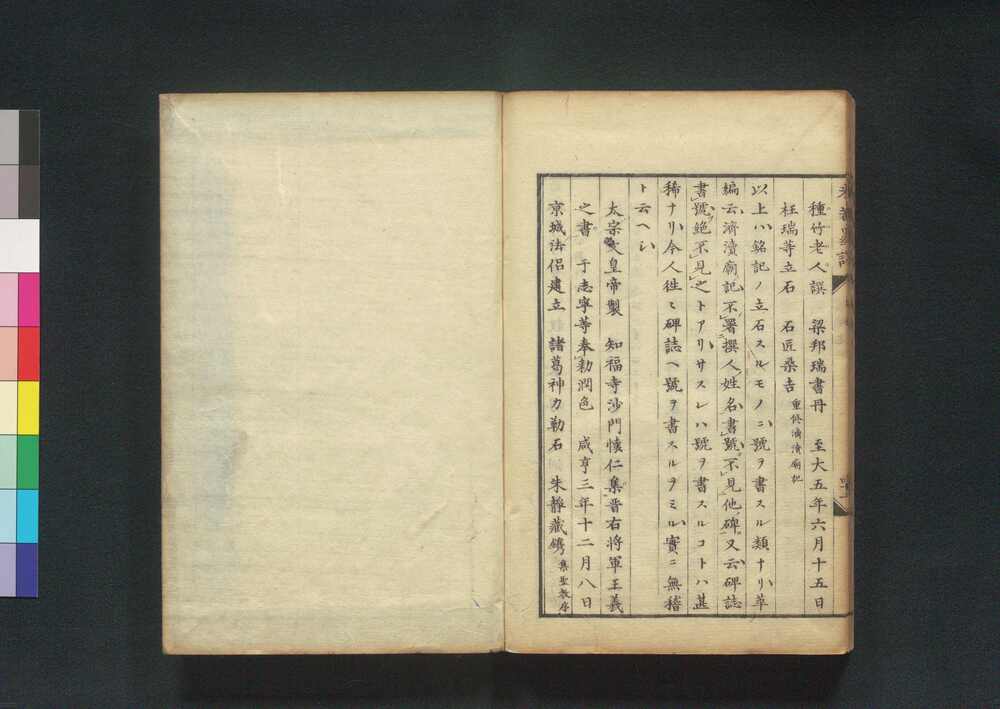 種竹老人譔　梁邦瑞書丹　至大五年六月十五日
枉瑞等立石　石匠桑吉 重修濟瀆廟記
以上ハ銘記ノ立石スルモノニ號ヲ書スル類ナリ萃
編云濟瀆廟記不署撰人姓名書號不見他碑又云碑誌
書號絶不見之トアリサスレハ號ヲ書スルコトハ甚
稀ナリ今人徃〻碑誌ヘ號ヲ書スルヲミル實ニ無稽
ト云ヘシ
太宗文皇帝製　知福寺沙門懐仁集晋右将軍王羲
之書　于志寧等奉勅潤色　咸亨三年十二月八日
京城法侣建立　諸葛神力勒石　朱静藏鐫 集聖教序